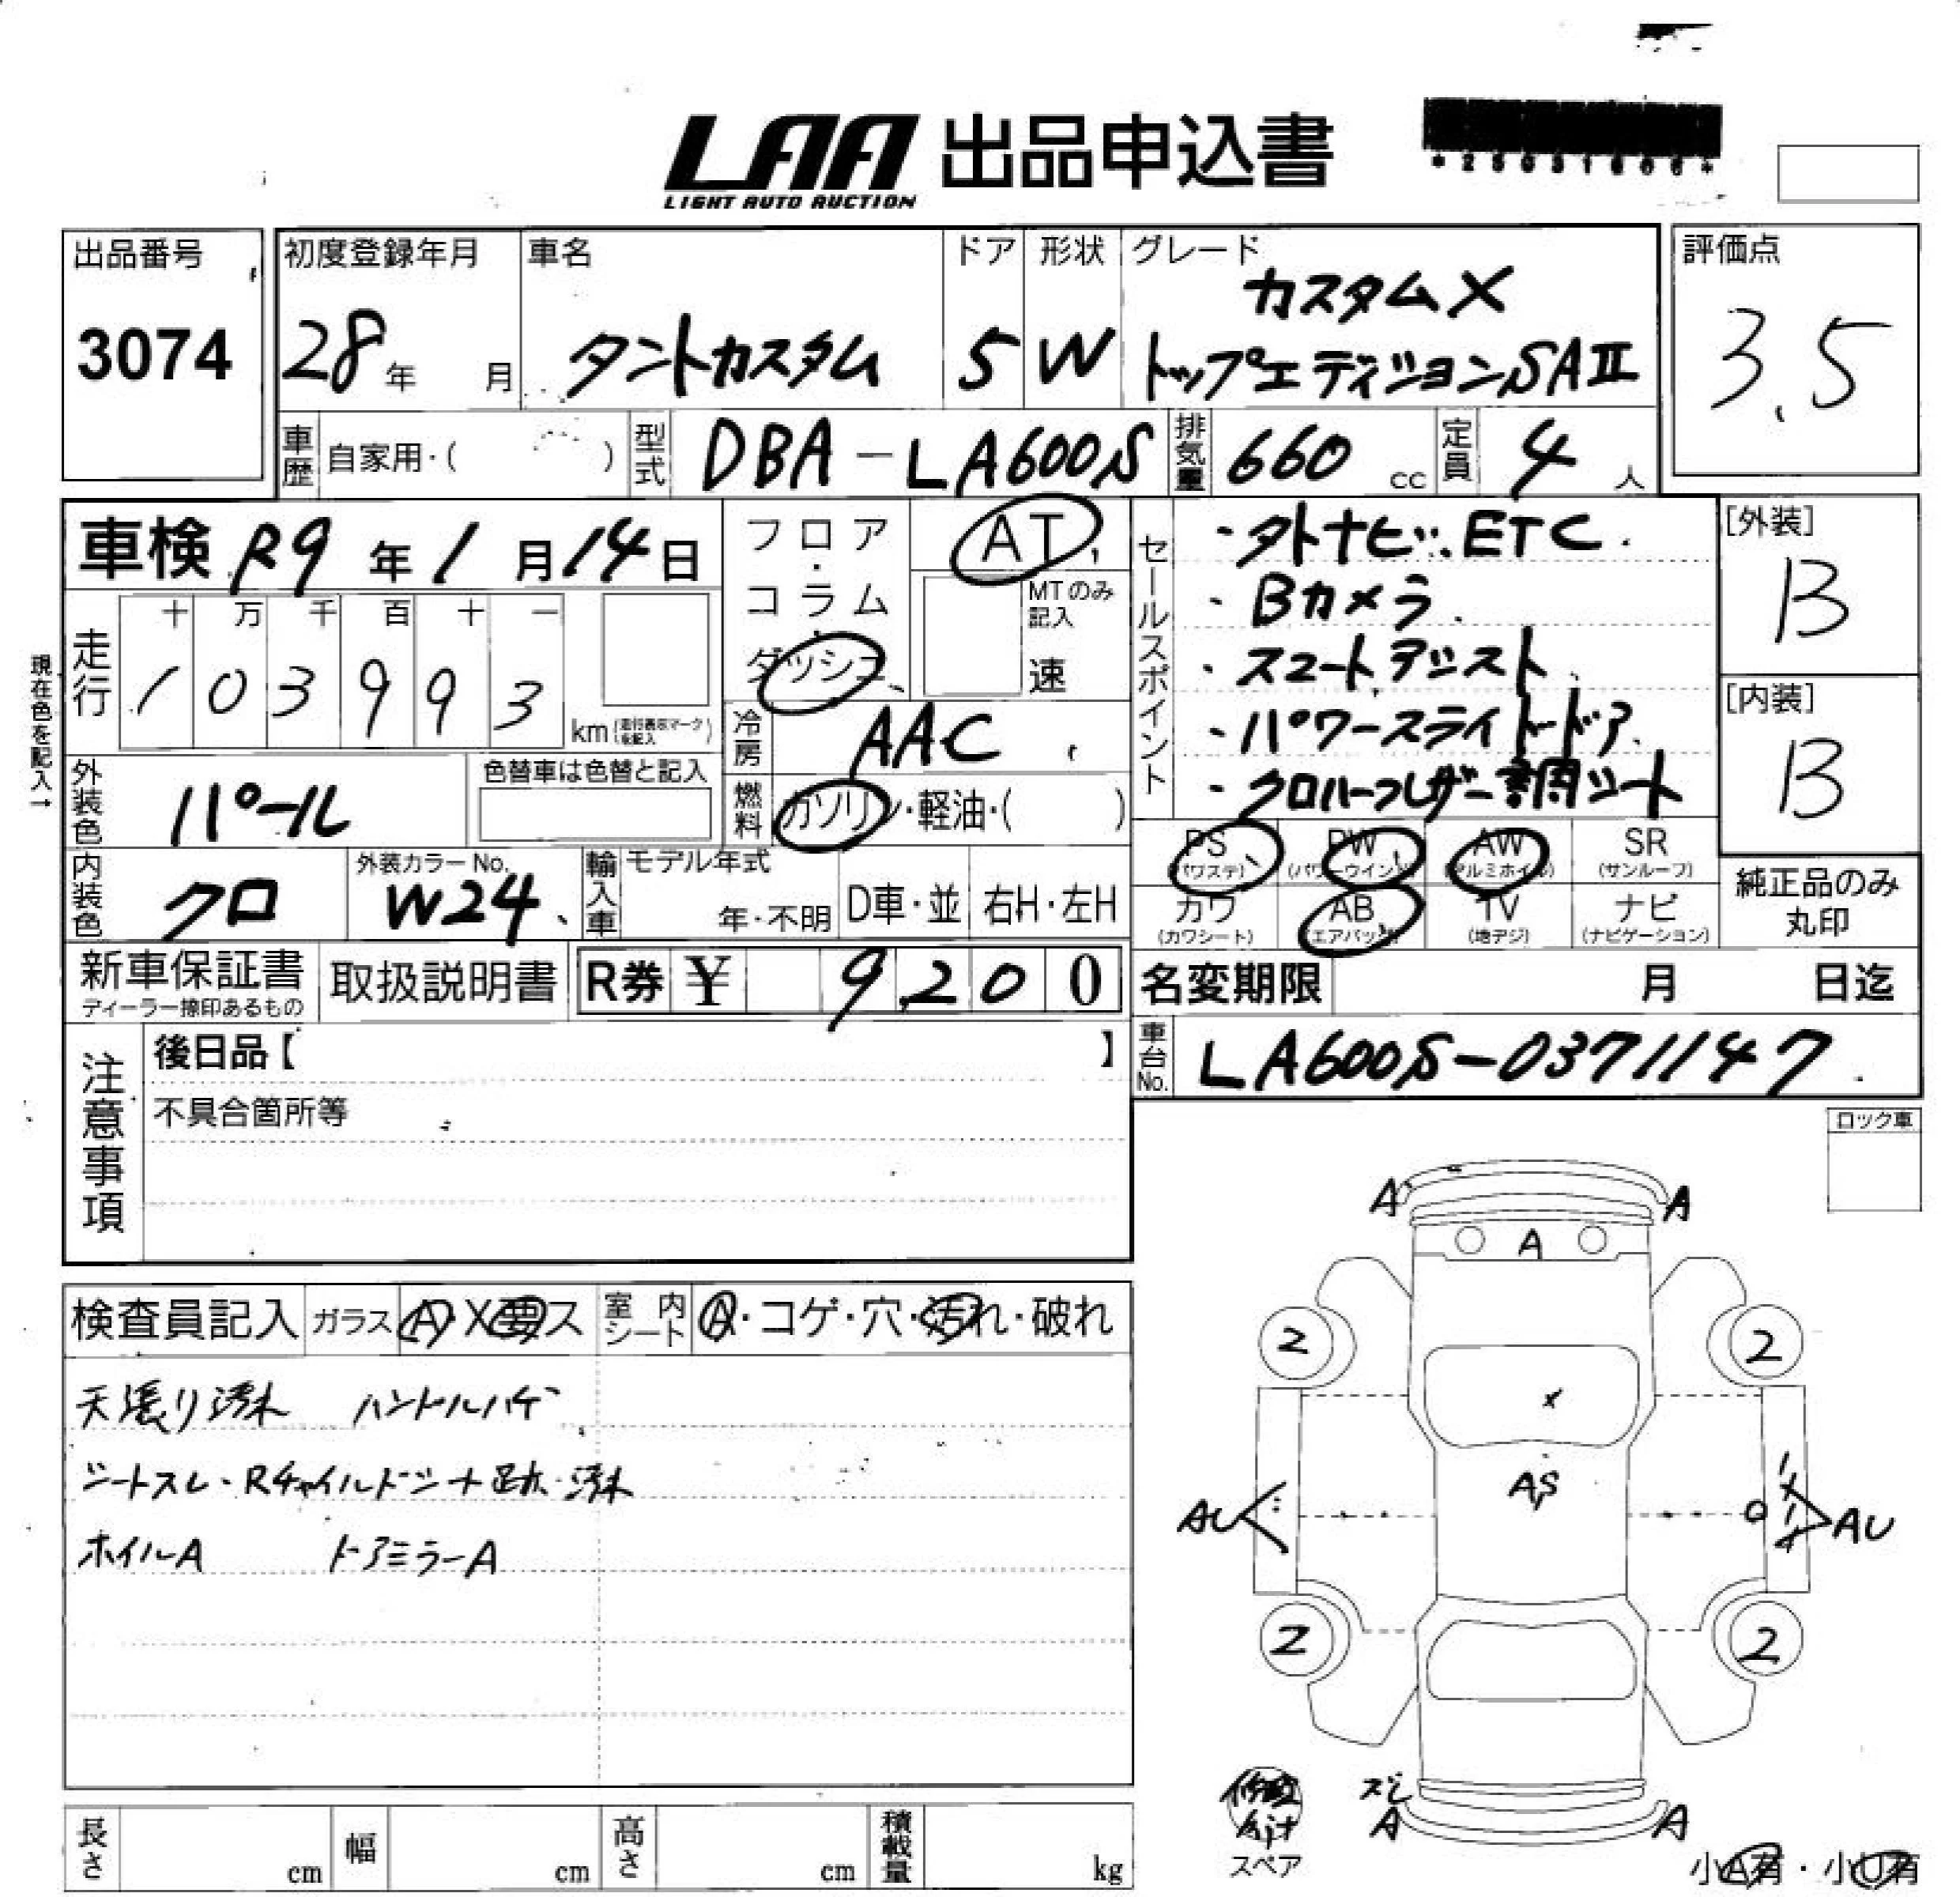 LAA 出品申込書
LIGHT AUTO AUCTION
出品番号 初度登録年月 車名 ドア 形状 グレード 評価点
カスタムX
3074 28年 月 タントカスタム 5 W トップエディションSAⅡ 3.5
車歴 自家用・( ) 型式 DBA-LA600S 排気量 660 cc 定員 4 人
車検 R9年1月14日 フロア・コラム・ダッシュ AT
MTのみ記入 速
セールスポイント
・外ナビ.ETC.
・Bカメラ
・スマートアシスト
・パワースライドドア
・クロハーフレザー調シート
[外装] B
[内装] B
現在色を記入→
走行 十 万 千 百 十 一
1 0 3 9 9 3 km
冷房 AAC
外装色 パール 色替車は色替と記入
燃料 ガソリン・軽油・( )
PS (パワステ) PW (パワーウインド) AW (アルミホイル) SR (サンルーフ)
カワ (カワシート) AB (エアバッグ) TV (地デジ) ナビ (ナビゲーション)
純正品のみ
丸印
内装色 クロ 外装カラーNo. W24 輸入車 モデル年式 年・不明 D車・並 右H・左H
新車保証書 取扱説明書 R券 ¥ 9,200 名変期限 月 日迄
ディーラー捺印あるもの
注意事項 後日品【 】
車台No. LA600S-0371147
不具合箇所等
ロック車
検査員記入 ガラス A X 要 ス 室内シート A・コゲ・穴・汚れ・破れ
天張り汚れ ハンドルハゲ
シートスレ・Rチャイルドシート跡・汚れ
ホイルA ドアミラーA
A A
A
2 2
X
AS
AU AU
2 2
A A
スペア
小A有・小U有
長さ cm 幅 cm 高さ cm 積載量 kg